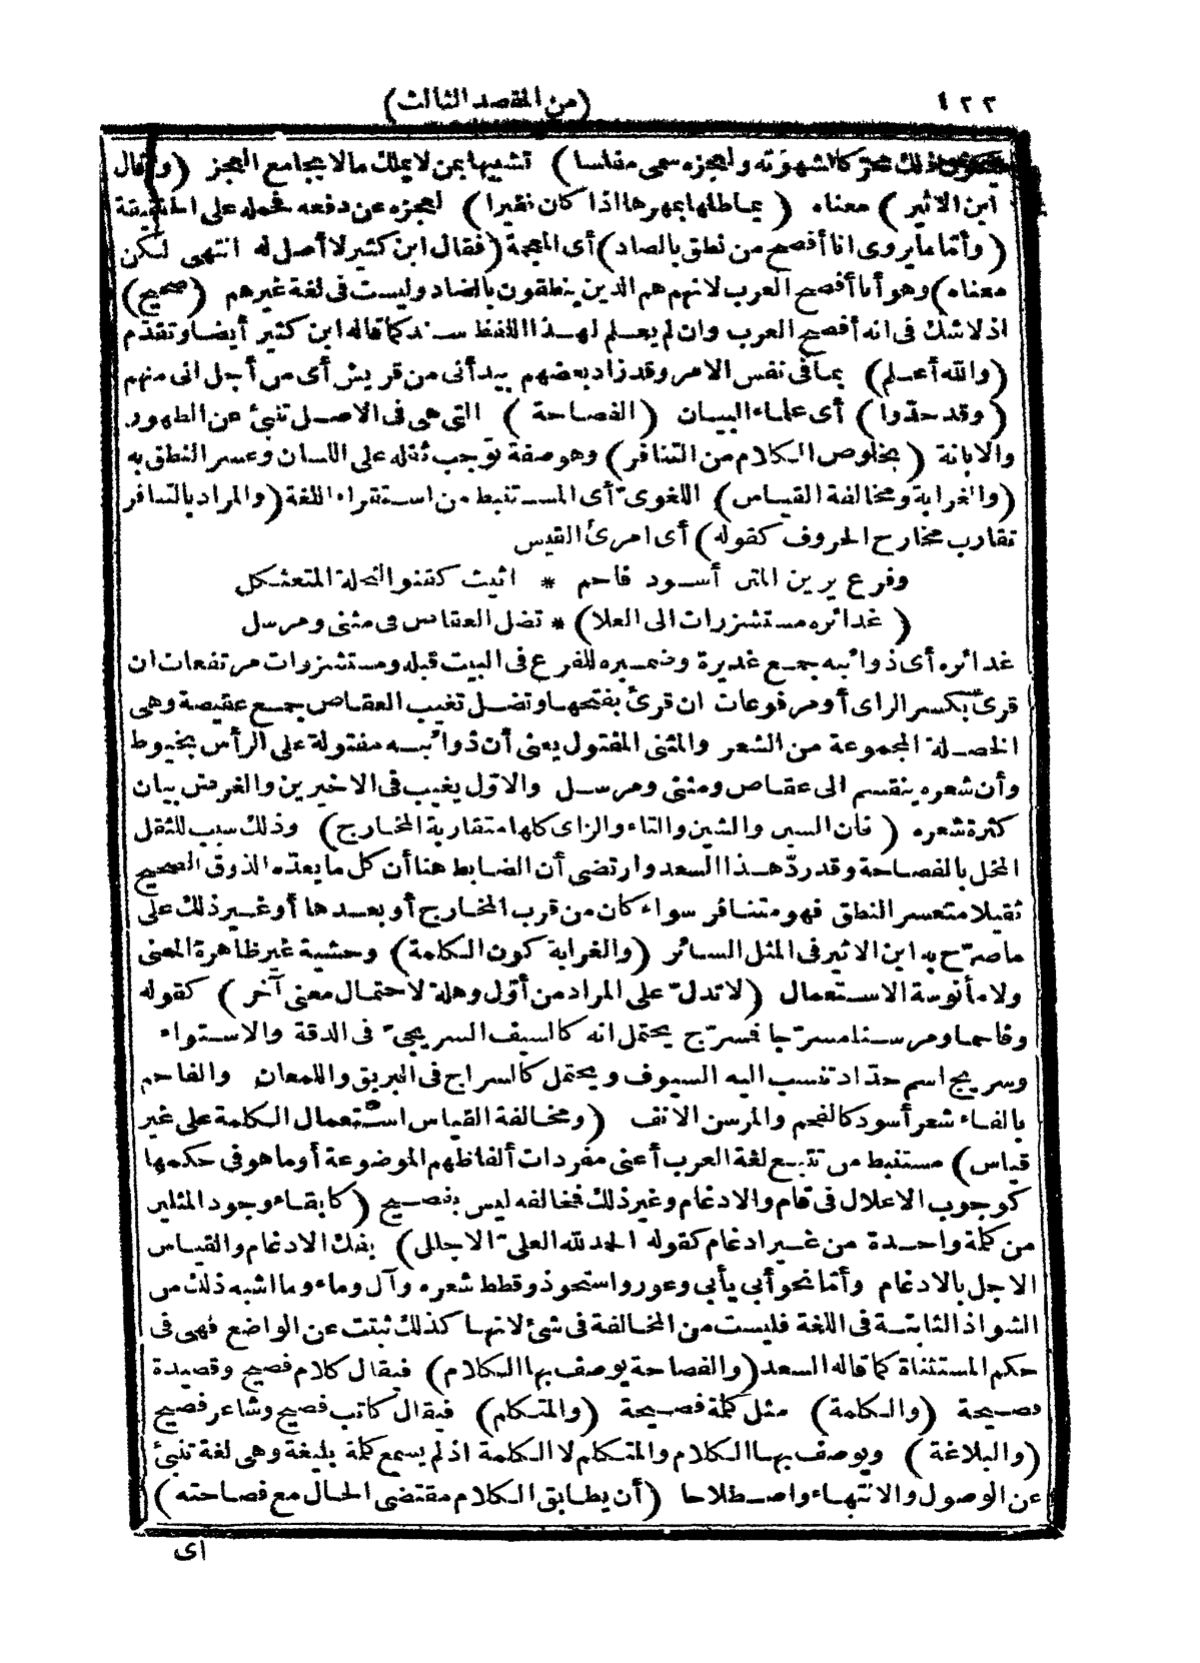 ١٢٢
(من المقصد الثالث)
ذلك محركا لشهوته ولعجزه سمى مفلسا) تشبيها بمن لا يملك مالا بجامع العجز (وقال
ابن الاثير) معناه (يماطلها بمهرها اذا كان فقيرا) لعجزه عن دفعه فحمله على الحقيقة
(وأتما مايروى انا أفصح من نطق بالصاد) أى المعجمة (فقال ابن كثير لا أصل له انتهى لكن
معناه) وهو أنا أفصح العرب لانهم هم الذين ينطقون بالضاد وليست فى لغة غيرهم (صحيح)
اذ لاشك فى انه أفصح العرب وان لم يعلم لهذا اللفظ سند كما قاله ابن كثير أيضا وتقدّم
(والله أعلم) بما فى نفس الامر وقد زاد بعضهم بيد أنى من قريش أى من أجل انى منهم
(وقد حدّوا) أى علماء البيان (الفصاحة) التى هى فى الاصل تنبئ عن الظهور
والابانة (بخلوص الكلام من التنافر) وهو صفة توجب ثقله على اللسان وعسر النطق به
(والغرابة ومخالفة القياس) اللغوىّ أى المستنبط من استقراء اللغة (والمراد بالتنافر
تقارب مخارح الحروف كقوله) أى امرئ القيس
وفرع يزين المتن أسود فاحم * اثيث كقنو النخلة المتعثكل
(غدائره مستشزرات الى العلا) * تضل العقاص فى مثنى ومرسل
غدائره أى ذوائبه جمع غديرة وضميره للفرع فى البيت قبله ومستشزرات مرتفعات ان
قرئ بكسر الراى أو مرفوعات ان قرئ بفتحها وتضل تغيب العقاص جمع عقيصة وهى
الخصلة المجموعة من الشعر والمثنى المفتول يعنى أن ذوائبه مفتولة على الرأس بخيوط
وأن شعره ينقسم الى عقاص ومثنى ومرسل والاوّل يغيب فى الاخيرين والغرض بيان
كثرة شعره (فان السين والشين والتاء والزاى كلها متقاربة المخارج) وذلك سبب للثقل
المخل بالفصاحة وقد ردّ هذا السعد وارتضى أن الضابط هنا أن كل ما يعدّه الذوق الصحيح
ثقيلا متعسر النطق فهو متنافر سواء كان من قرب المخارج أو بعدها أو غير ذلك على
ما صرّح به ابن الاثير فى المثل السائر (والغرابة كون الكلمة) وحشية غير ظاهرة المعنى
ولا مأنوسة الاستعمال (لا تدل على المراد من أوّل وهلة لاحتمال معنى آخر) كقوله
وفاحما ومرسنا مسرّجا فسرّج يحتمل انه كالسيف السريجىّ فى الدقة والاستواء
وسريج اسم حدّاد تنسب اليه السيوف ويحتمل كالسراج فى البريق واللمعان والفاحم
بالفاء شعر أسود كالفحم والمرسن الانف (ومخالفة القياس استعمال الكلمة على غير
قياس) مستنبط من تتبع لغة العرب أعنى مفردات ألفاظهم الموضوعة أوما هو فى حكمها
كوجوب الاعلال فى قام والادغام وغير ذلك فخالفه ليس بفصيح (كابقاء وجود المثلين
من كلمة واحدة من غير ادغام كقوله الحمد لله العلىّ الاجلل) بفك الادغام والقياس
الاجل بالادغام وأمّا نحو أبى يأبى وعور واستحوذ وقطط شعره وآل وماء وما اشبه ذلك من
الشواذ الثابتة فى اللغة فليست من المخالفة فى شئ لانها كذلك ثبتت عن الواضع فهى فى
حكم المستثناة كما قاله السعد (والفصاحة يوصف بها الكلام) فيقال كلام فصيح وقصيدة
فصيحة (والكلمة) مثل كلمة فصيحة (والمتكلم) فيقال كاتب فصيح وشاعر فصيح
(والبلاغة) ويوصف بها الكلام والمتكلم لا الكلمة اذ لم يسمع كلمة بليغة وهى لغة تنبئ
عن الوصول والانتهاء واصطلاحا (أن يطابق الكلام مقتضى الحال مع فصاحته)
اى